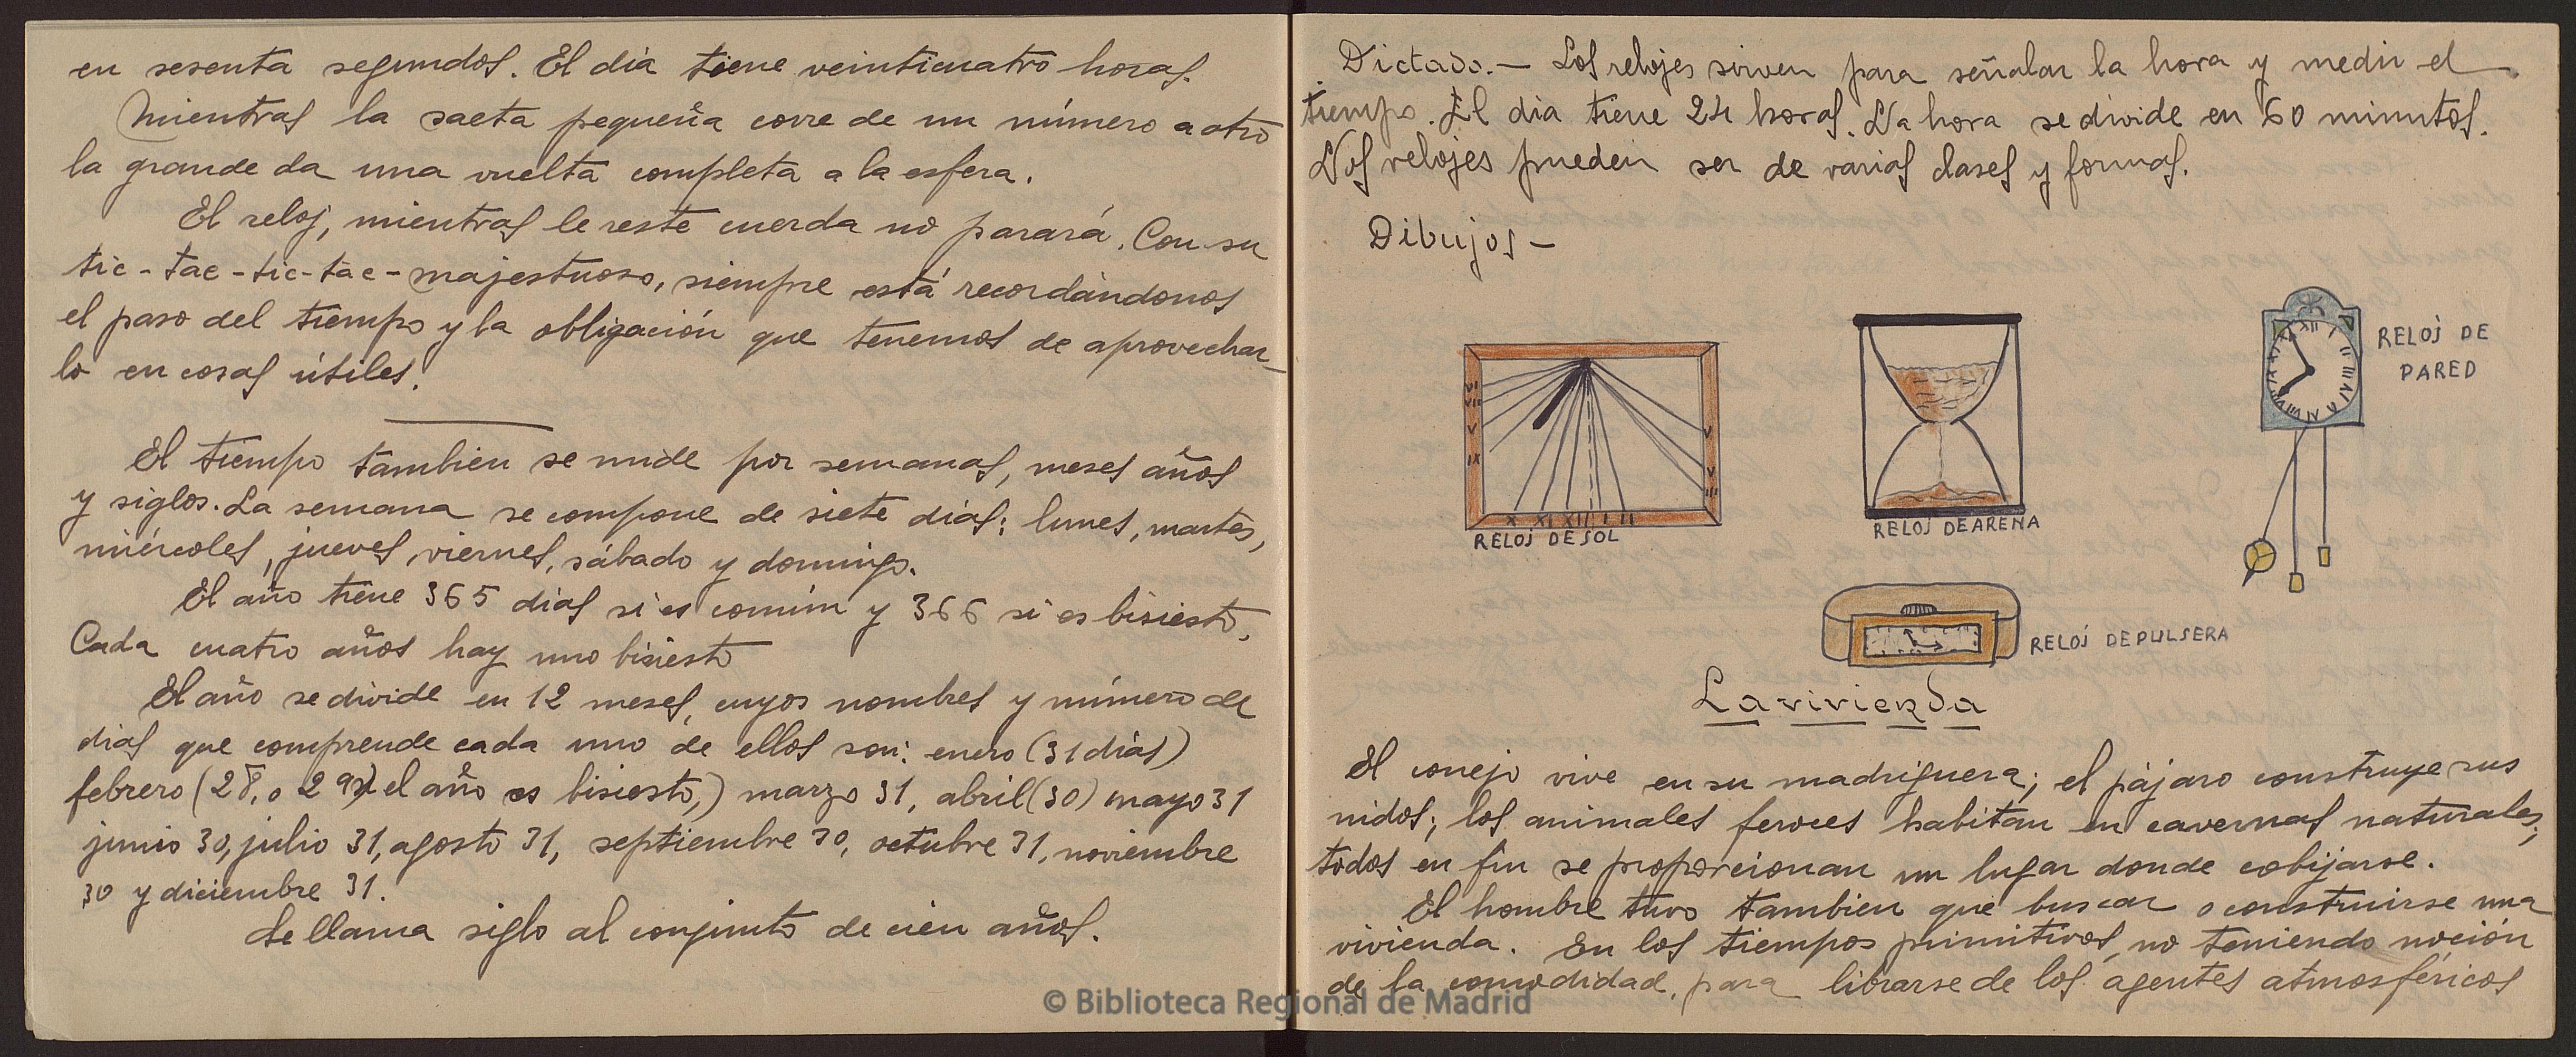 en sesenta segundos. El día tiene veinticuatro horas.
Mientras la saeta pequeña corre de un número a otro
la grande da una vuelta completa a la esfera.
El reloj, mientras le reste cuerda no parará. Con su
tic-tac-tic-tac-majestuoso, siempre está recordándonos
el paso del tiempo y la obligación que tenemos de aprovechar-
lo en cosas útiles.
El tiempo tambien se mide por semanas, meses años
y siglos. La semana se compone de siete días: lunes, martes,
miércoles, jueves, viernes, sábado y domingo.
El año tiene 365 días si es común y 366 si es bisiesto.
Cada cuatro años hay uno bisiesto
El año se divide en 12 meses, cuyos nombres y número de
dias que comprende cada uno de ellos son: enero (31 días)
febrero (28, o 29 el año es bisiesto,) marzo 31, abril (30) mayo 31
junio 30, julio 31, agosto 31, septiembre 30, octubre 31, noviembre
30 y diciembre 31.
Se llama siglo al conjunto de cien años.
Dictado.- Los relojes sirven para señalar la hora y medir el
tiempo. El dia tiene 24 horas. La hora se divide en 60 minutos.
Los relojes pueden ser de varias clases y formas.
Dibujos-
VI
VII
V
IX
X XI XII I II
V
V
III
RELOJ DE SOL
RELOJ DE ARENA
RELOJ DE
PARED
RELOJ DE PULSERA
La vivienda
El conejo vive en su madriguera; el pájaro construye sus
nidos; los animales feroces habitan en cavernas naturales;
todos en fin se proporcionan un lugar donde cobijarse.
El hombre tuvo tambien que buscar o construirse una
vivienda. En los tiempos primitivos, no teniendo noción
de la comodidad, para librarse de los agentes atmosféricos
© Biblioteca Regional de Madrid